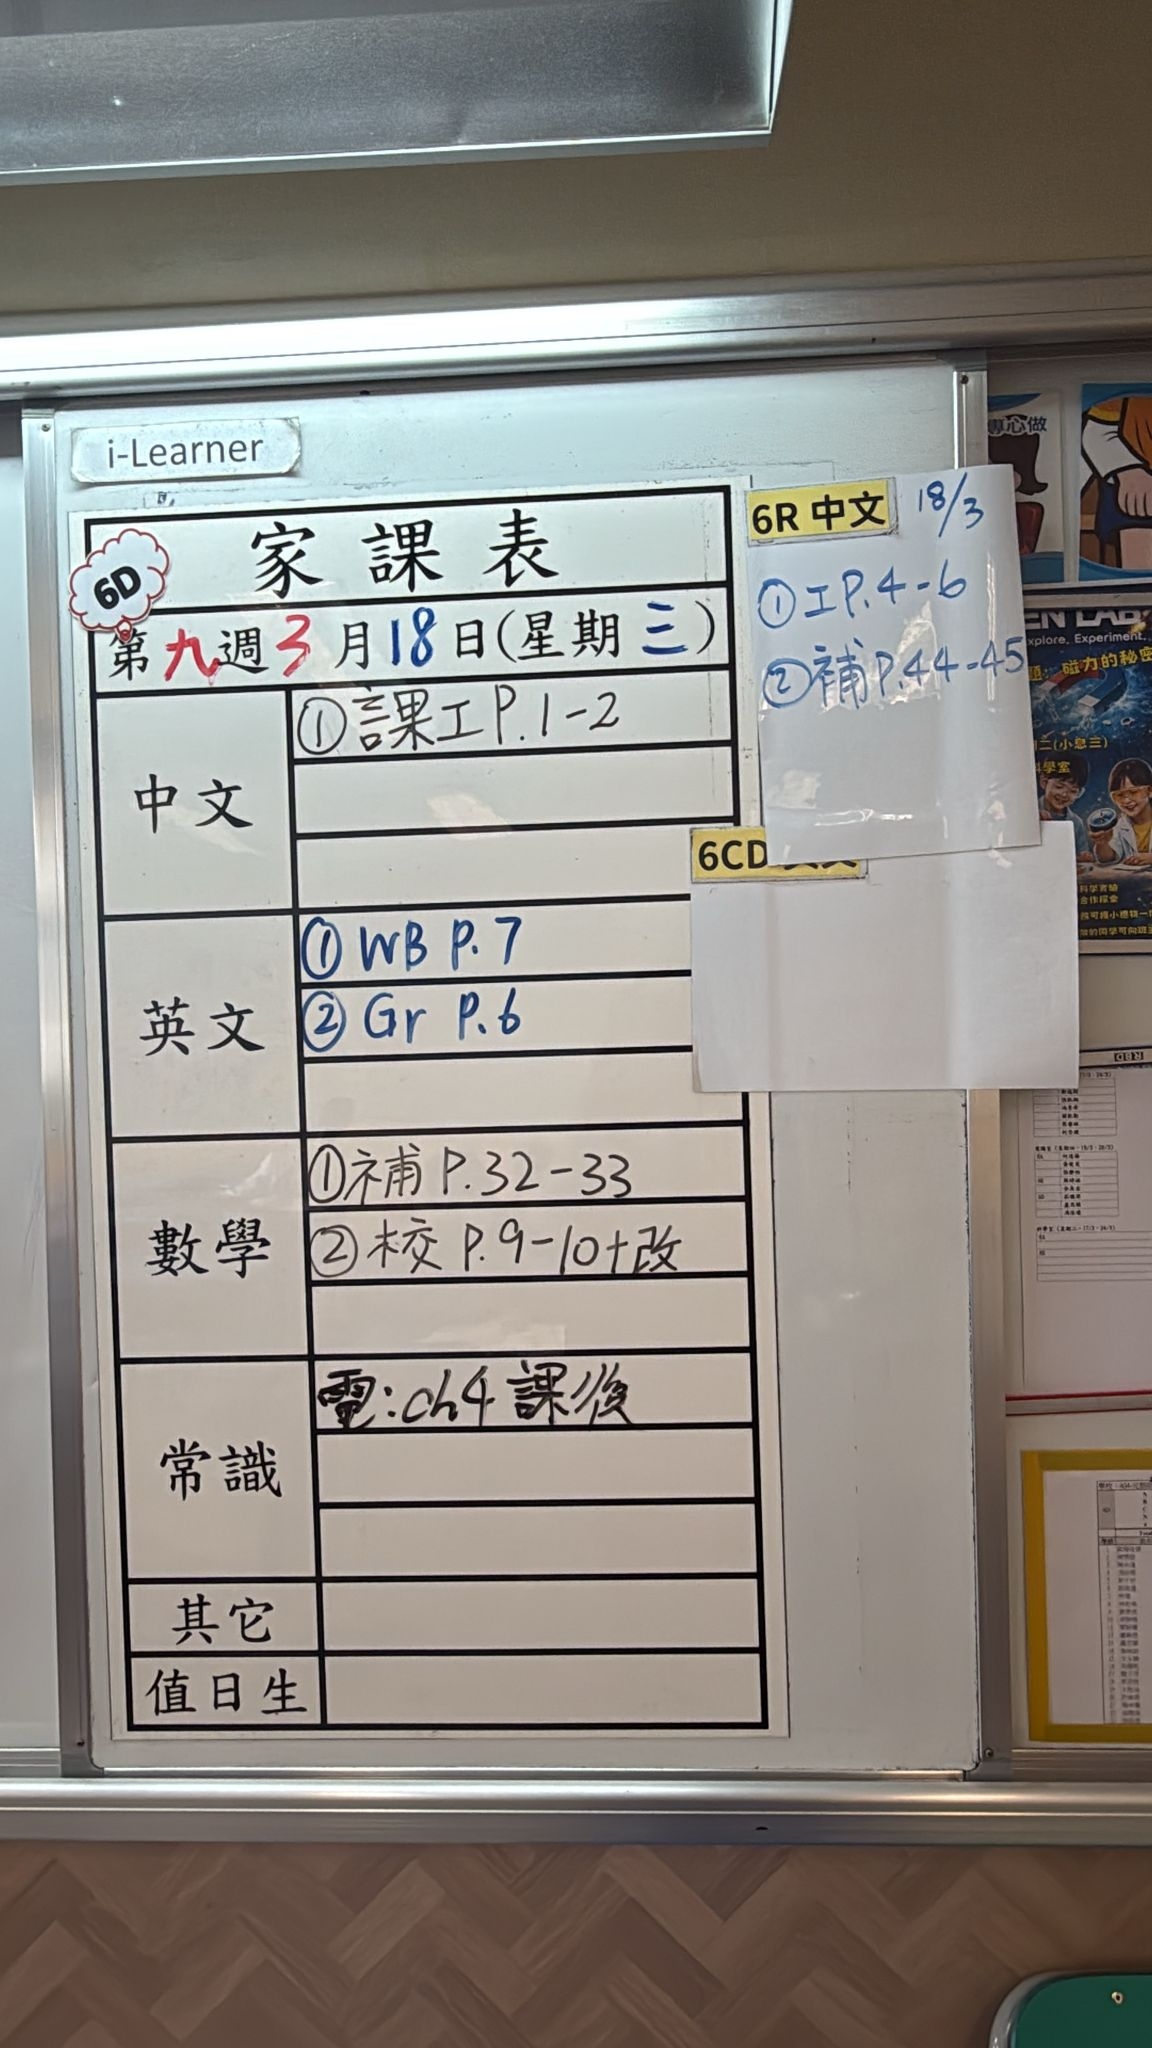 i-Learner
家課表
6D
第九週3月18日(星期三)
中文
①課工P.1-2
英文
①WB P.7
②Gr P.6
數學
①補P.32-33
②校P.9-10+改
常識
電:ch4課後
其它
值日生
6R 中文 18/3
①工P.4-6
②補P.44-45
6CD
專心做
EN LAB
xplore. Experiment.
磁力的秘密
二(小息三)
學室
科學實驗
合作探索